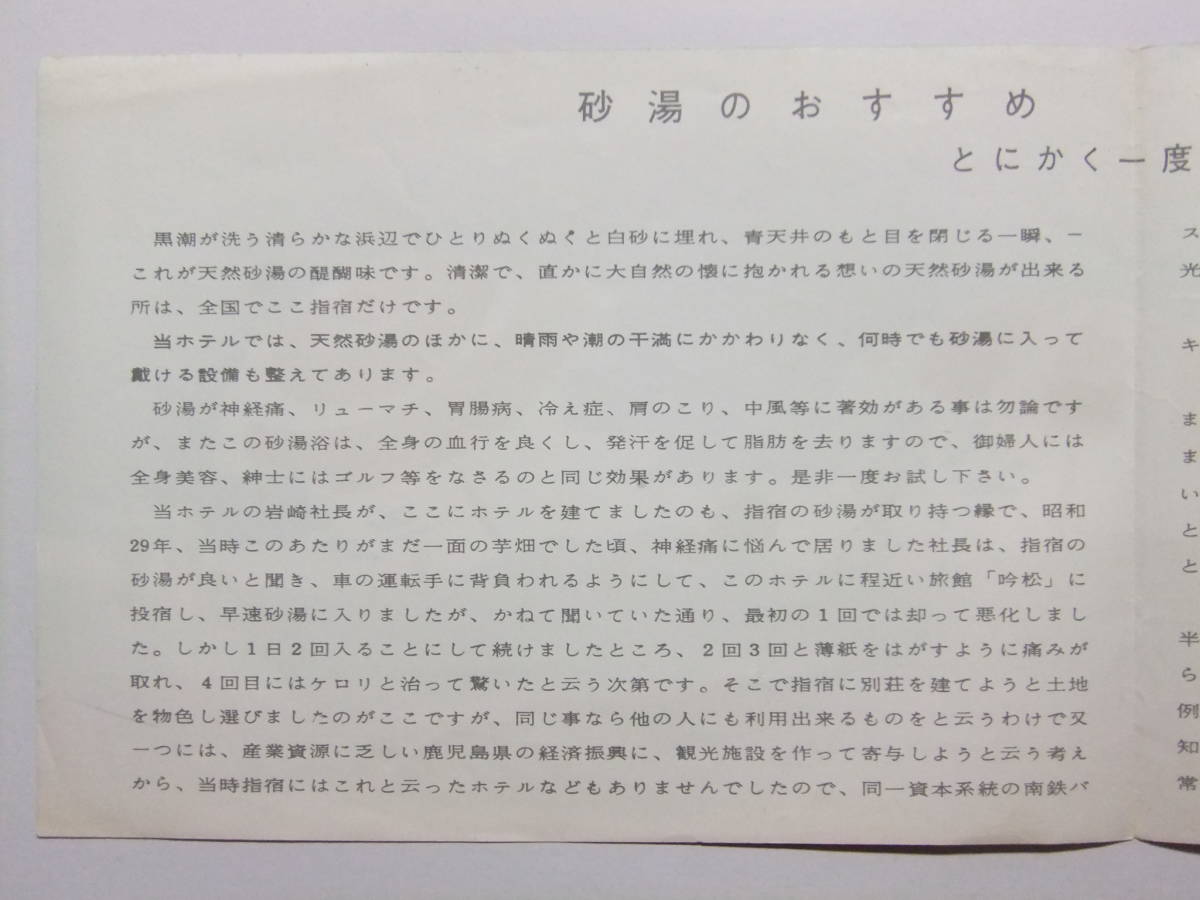 砂湯のおすすめ
とにかく一度
黒潮が洗う清らかな浜辺でひとりぬくぬくと白砂に埋れ、青天井のもと目を閉じる一瞬、－
これが天然砂湯の醍醐味です。清潔で、直かに大自然の懐に抱かれる想いの天然砂湯が出来る
所は、全国でここ指宿だけです。
当ホテルでは、天然砂湯のほかに、晴雨や潮の干満にかかわりなく、何時でも砂湯に入って
戴ける設備も整えてあります。
砂湯が神経痛、リューマチ、胃腸病、冷え症、肩のこり、中風等に著効がある事は勿論です
が、またこの砂湯浴は、全身の血行を良くし、発汗を促して脂肪を去りますので、御婦人には
全身美容、紳士にはゴルフ等をなさるのと同じ効果があります。是非一度お試し下さい。
当ホテルの岩崎社長が、ここにホテルを建てましたのも、指宿の砂湯が取り持つ縁で、昭和
29年、当時このあたりがまだ一面の芋畑でした頃、神経痛に悩んで居りました社長は、指宿の
砂湯が良いと聞き、車の運転手に背負われるようにして、このホテルに程近い旅館「吟松」に
投宿し、早速砂湯に入りましたが、かねて聞いていた通り、最初の1回では却って悪化しまし
た。しかし1日2回入ることにして続けましたところ、2回3回と薄紙をはがすように痛みが
取れ、4回目にはケロリと治って驚いたと云う次第です。そこで指宿に別荘を建てようと土地
を物色し選びましたのがここですが、同じ事なら他の人にも利用出来るものをと云うわけで又
一つには、産業資源に乏しい鹿児島県の経済振興に、観光施設を作って寄与しようと云う考え
から、当時指宿にはこれと云ったホテルなどもありませんでしたので、同一資本系統の南鉄バ
ス
光
キ
ま
ま
い
と
と
半
ら
例
知
常